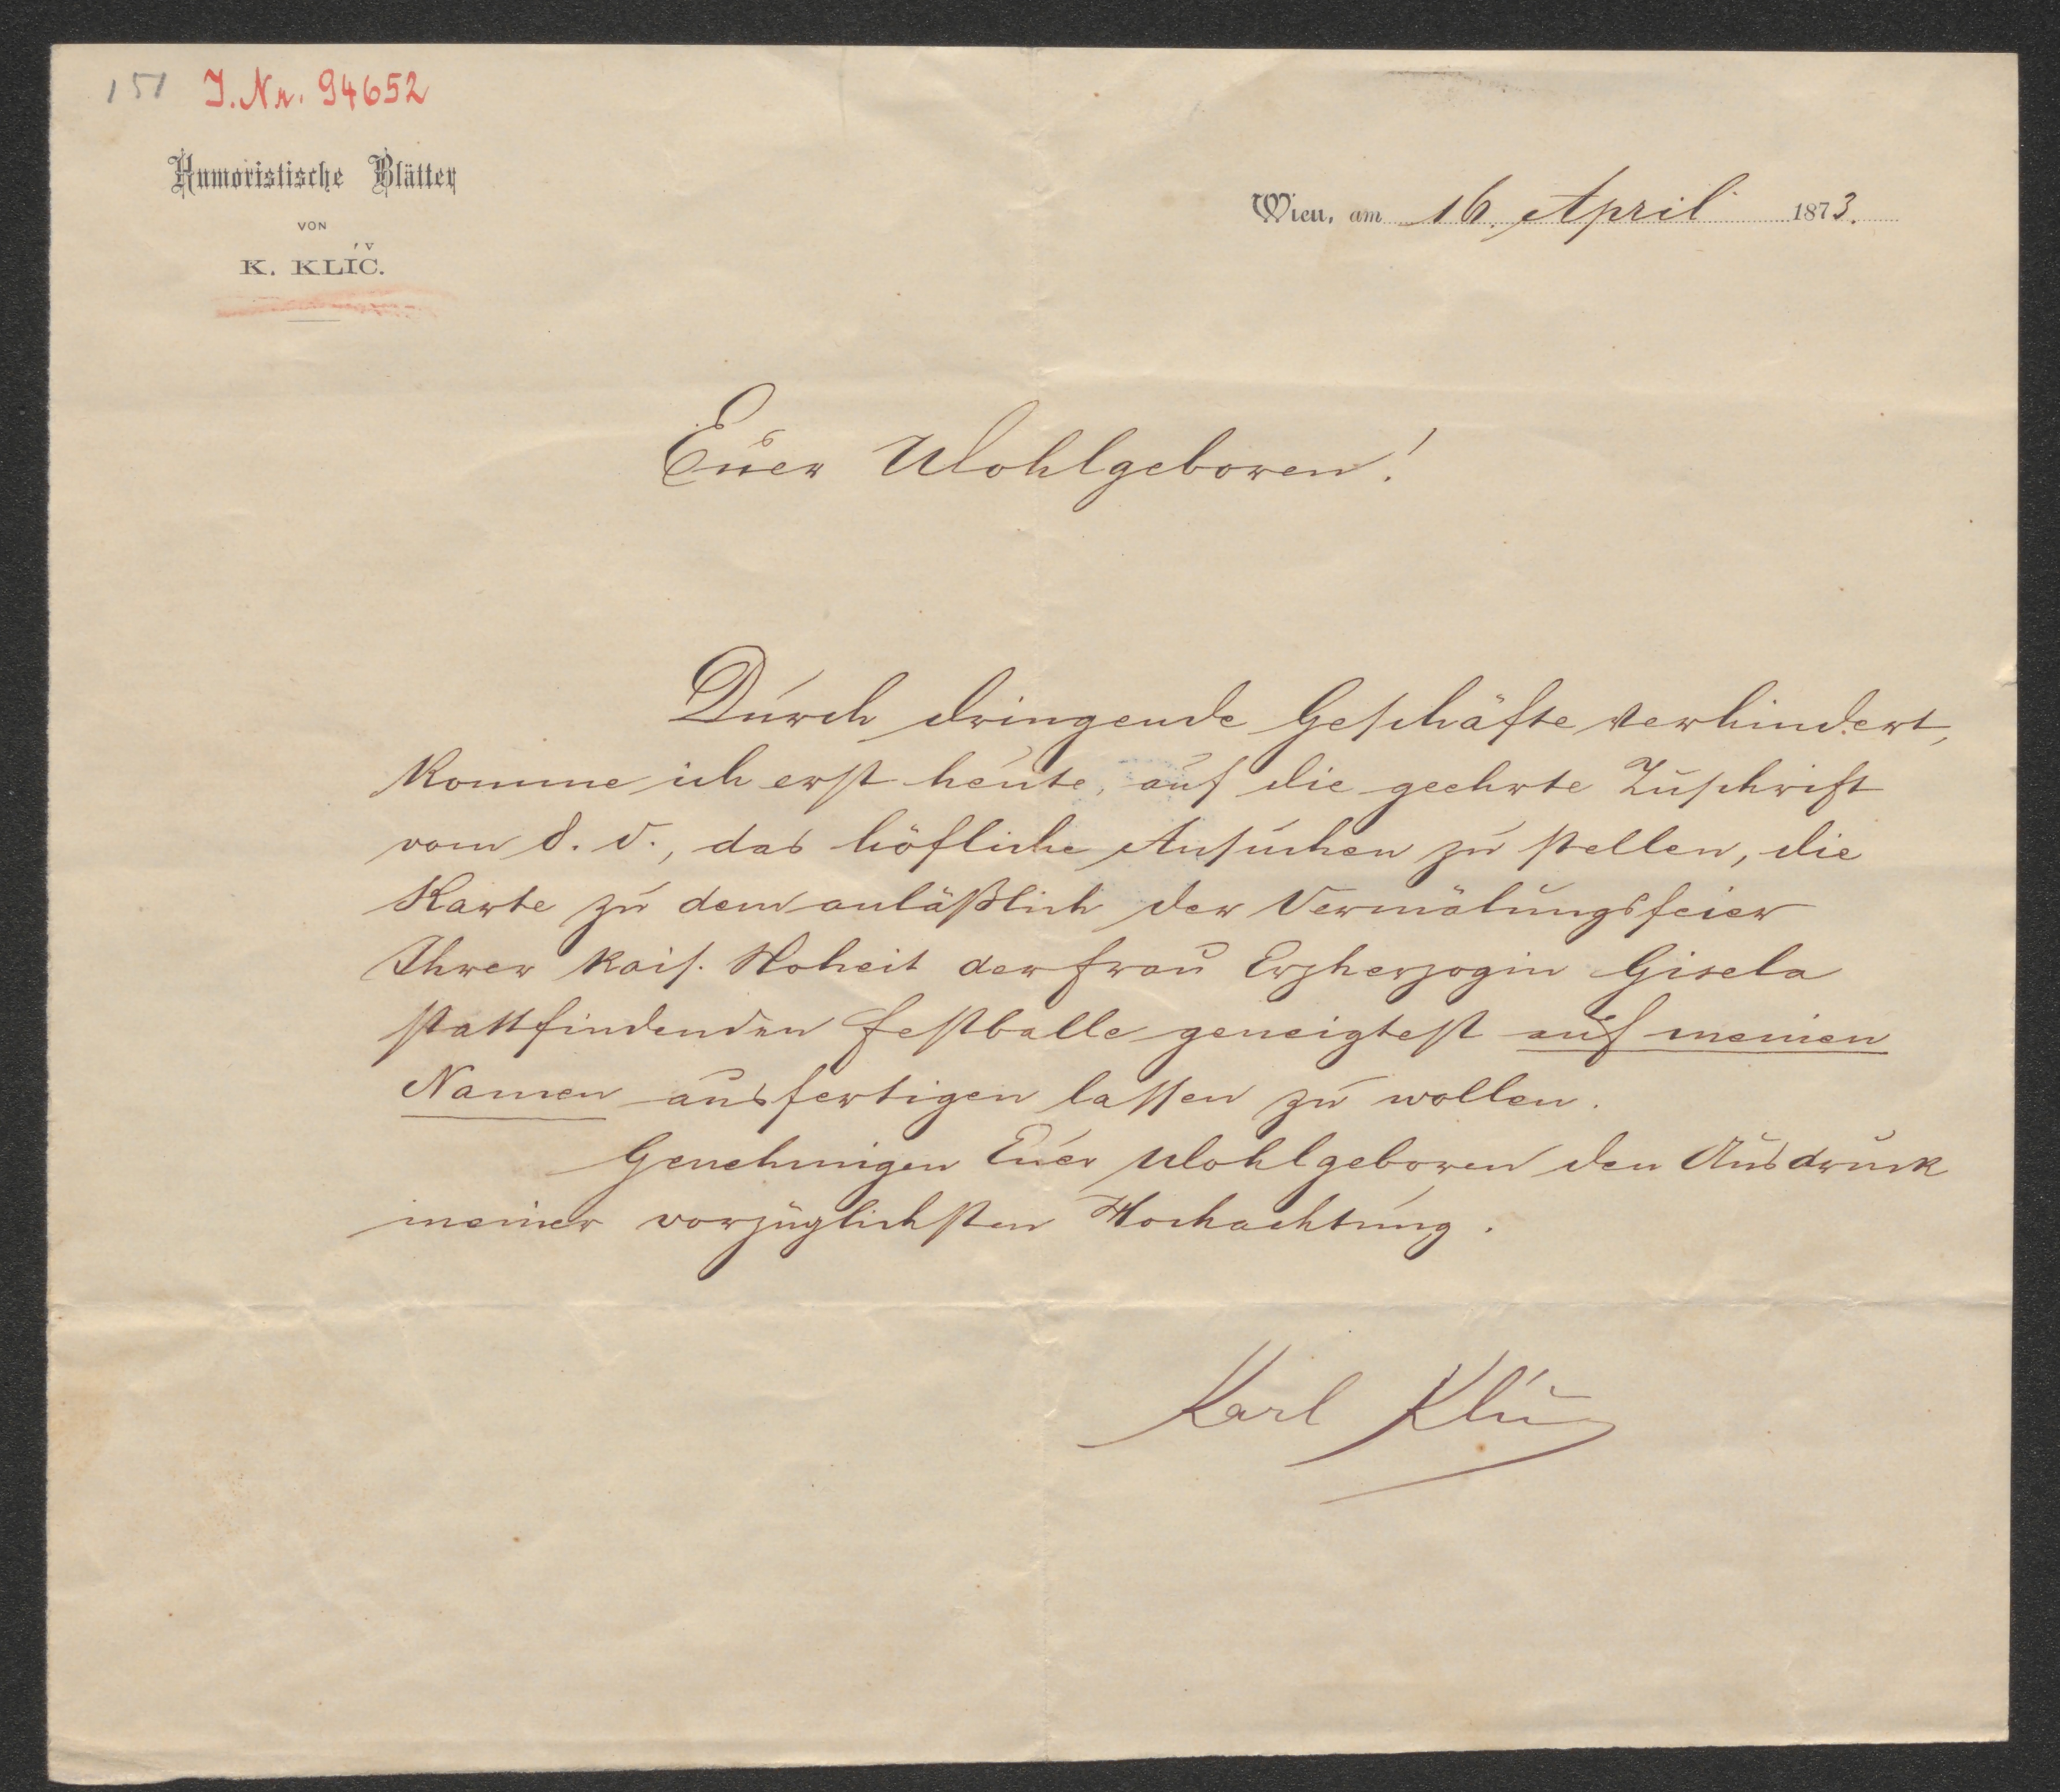 151 I. Nr. 94652
Humoristische Blätter
VON
K. KLÍČ.
Wien, am 16. April 1873.
Euer Wohlgeboren!
Durch dringende Geschäfte verhindert,
komme ich erst heute, auf die geehrte Zuschrift
vom 8. d., das höfliche Ansuchen zu stellen, die
Karte zu dem anläßlich der Vermälungsfeier
Ihrer kais. Hoheit der Frau Erzherzogin Gisela
stattfindenden Festballe geneigtest auf meinen
Namen ausfertigen lassen zu wollen.
Genehmigen Euer Wohlgeboren den Ausdruck
meiner vorzüglichsten Hochachtung.
Karl Klíč